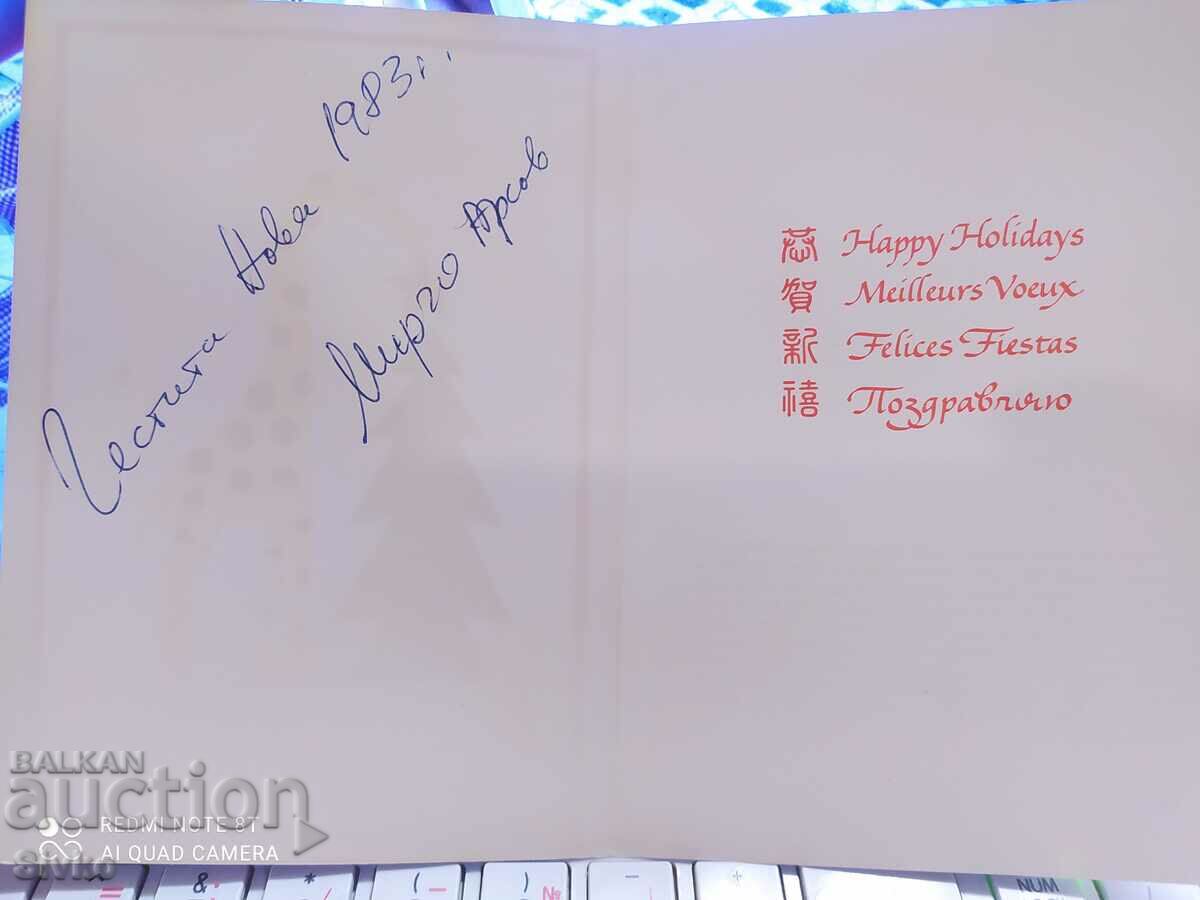 Честита Нова 1983 г.
Мирчо Арсов
恭 Happy Holidays
賀 Meilleurs Voeux
新 Felices Fiestas
禧 Поздравляю
BALKAN
auction
REDMI NOTE 8T
AI QUAD CAMERA
Sivko
& * ( ) № - +
NUM